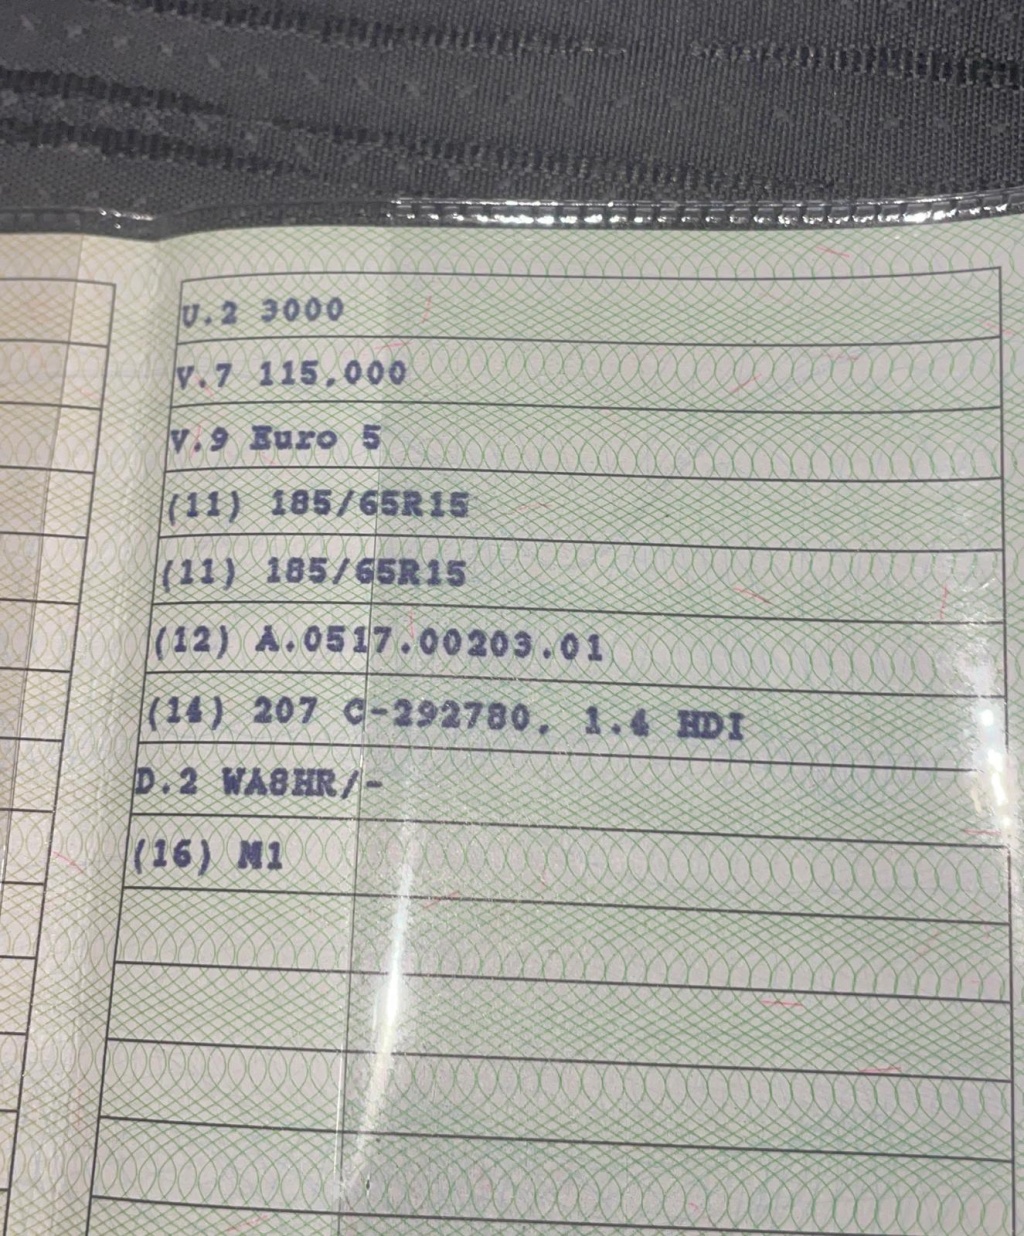 U.2 3000
V.7 115,000
V.9 Euro 5
(11) 185/65R15
(11) 185/65R15
(12) A.0517.00203.01
(14) 207 C-292780, 1.4 HDI
D.2 WA8HR/-
(16) M1